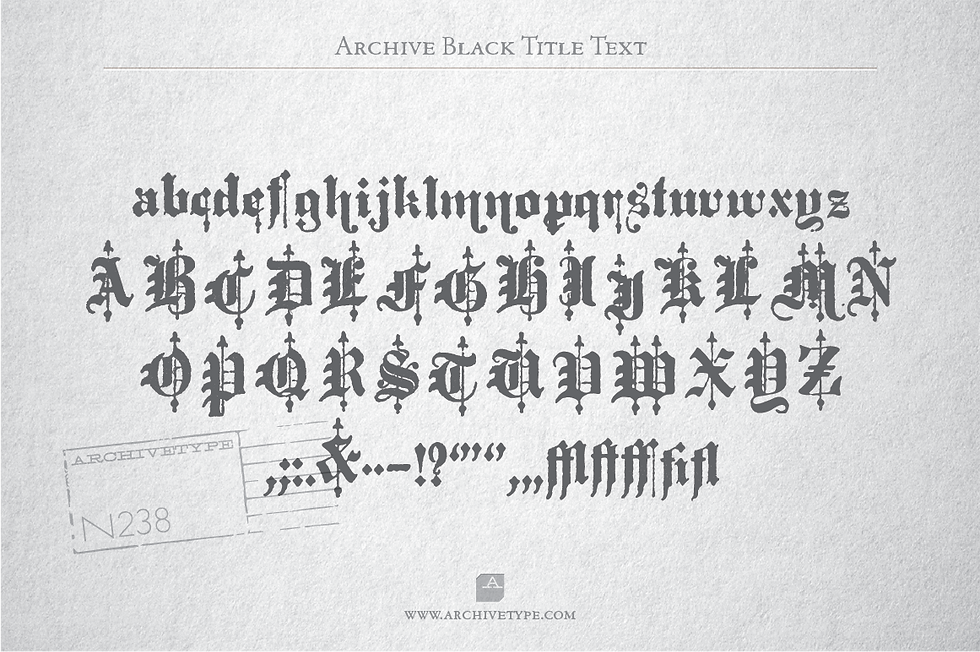 Archive Black Title Text
abcdefghijklmnopqrstuvwxyz
ABCDEFGHIJKLMN
OPQRSTUVWXYZ
,;:.&··–!?“”‘’ ‚„…
ARCHIVETYPE
N238
A
www.archivetype.com